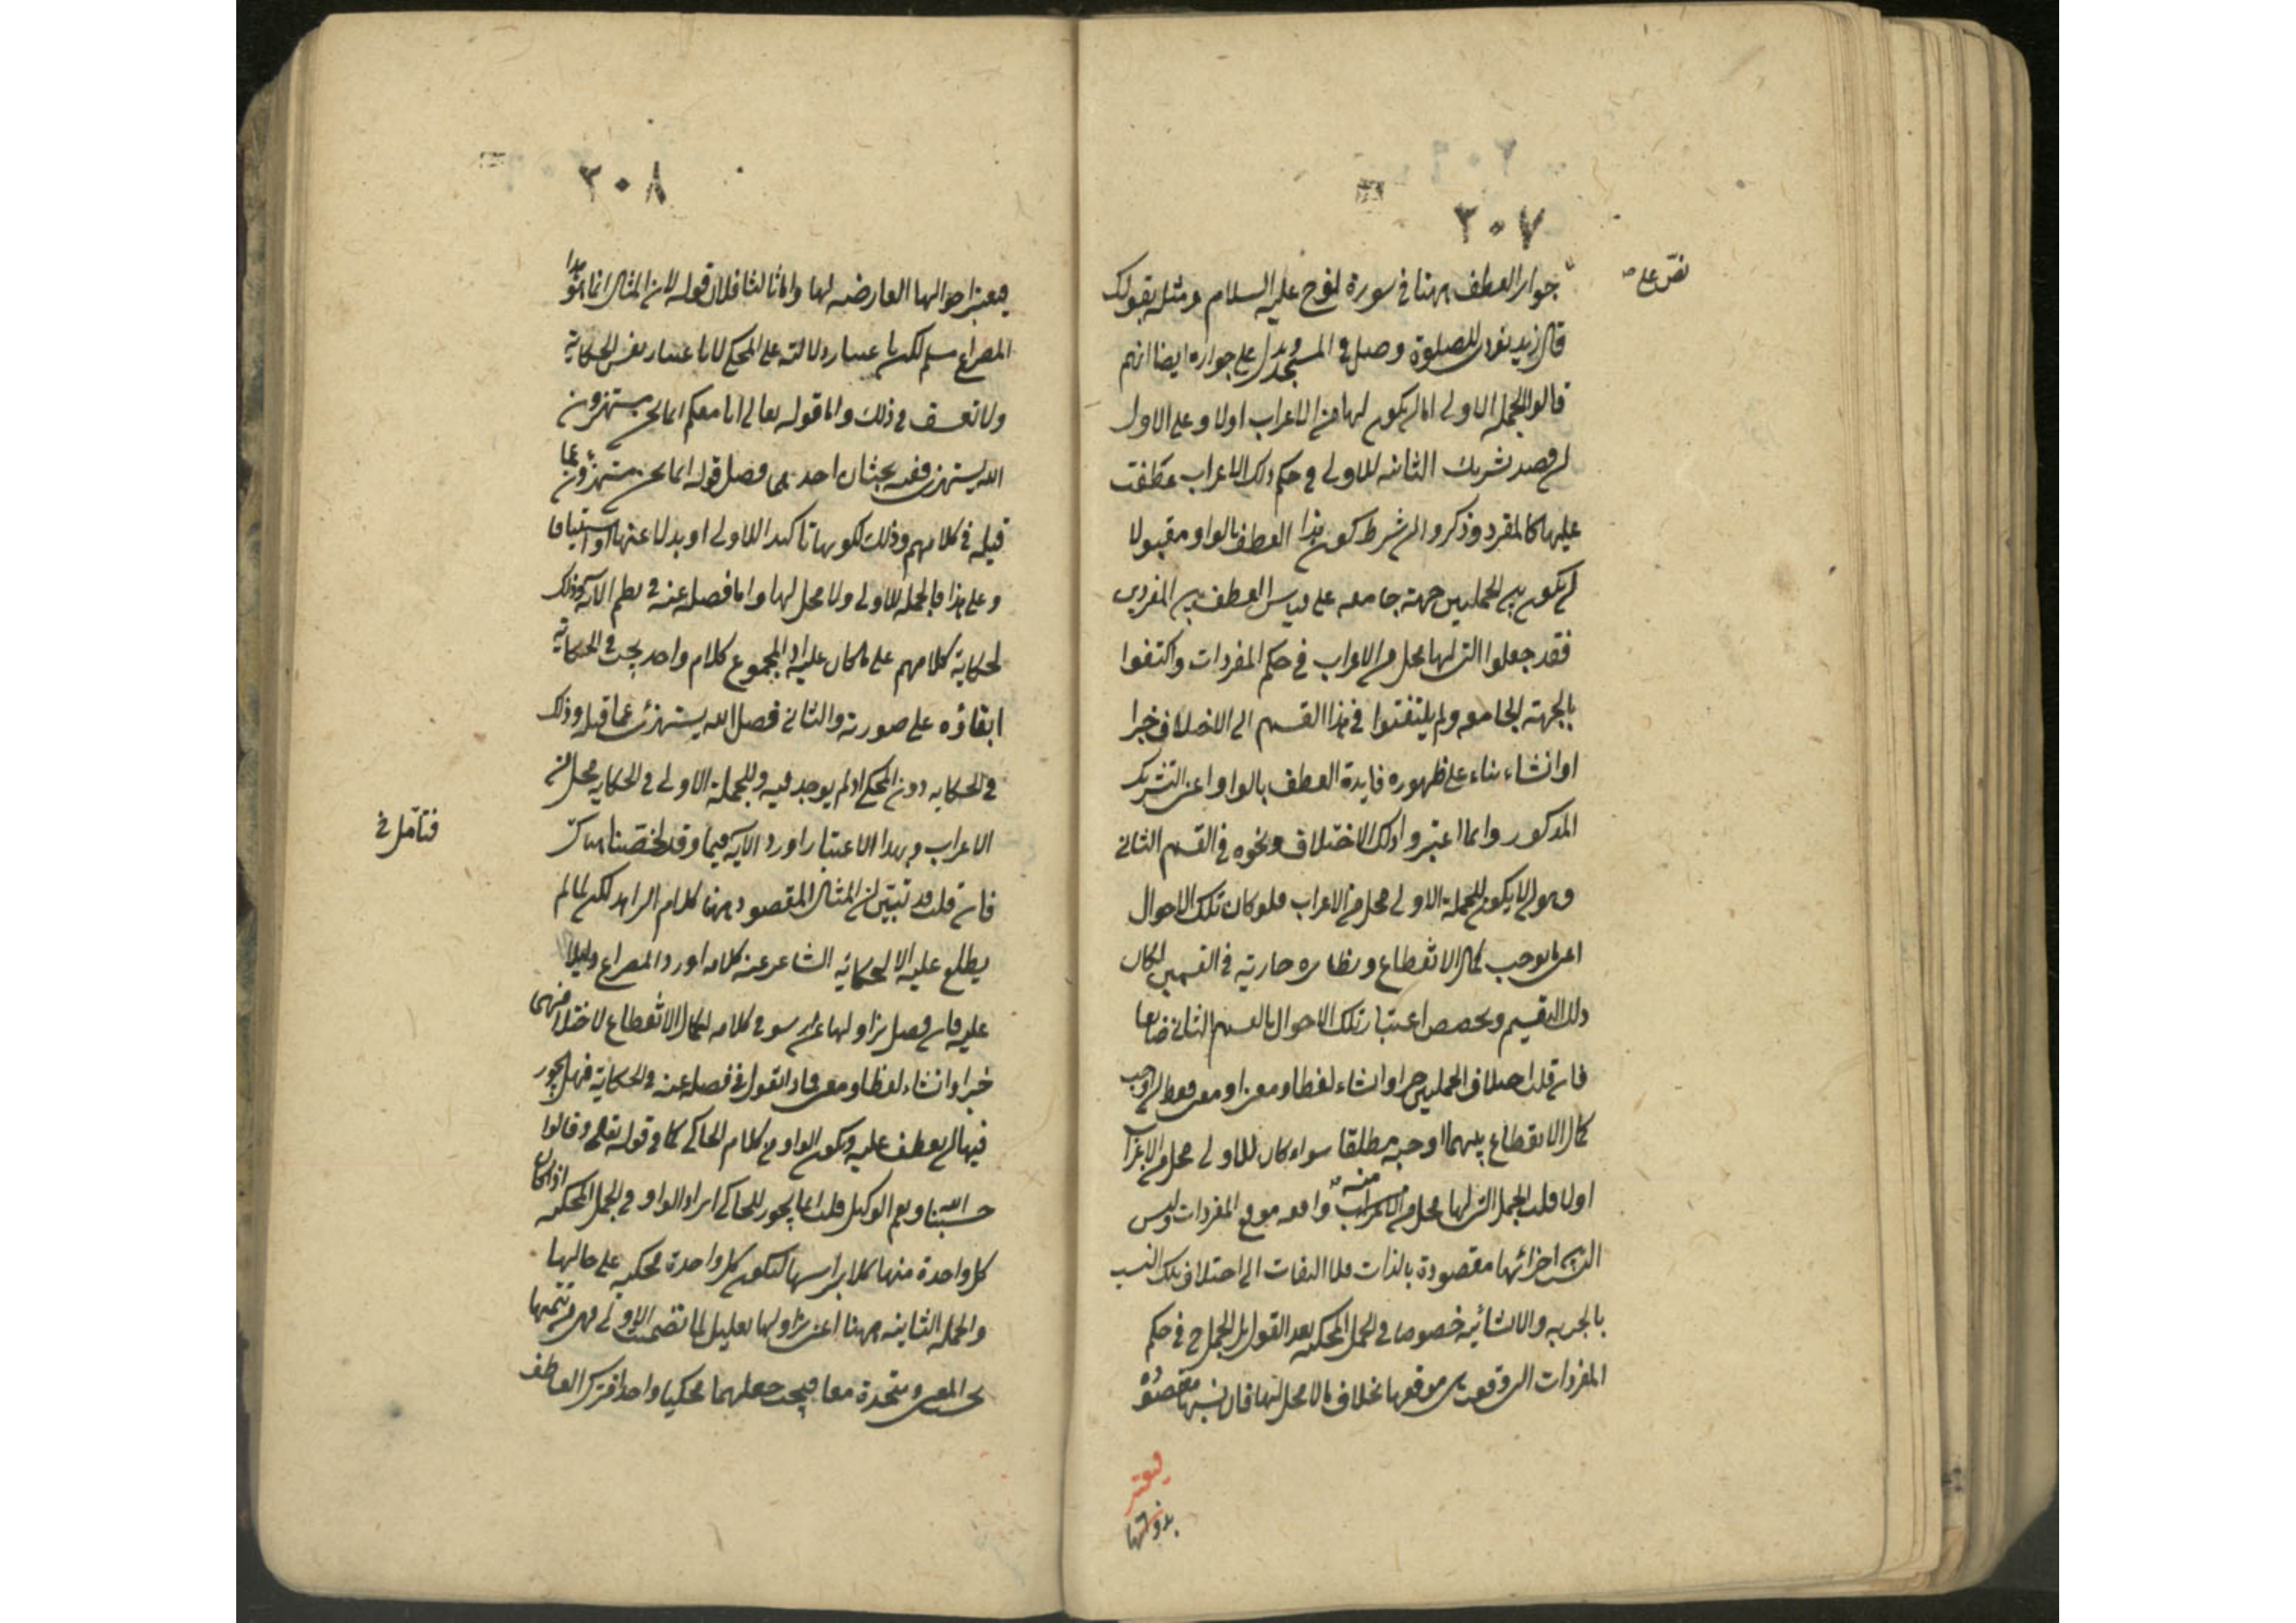 ٣٠٧
نصّ على
جواز العطف ههنا في سورة نوح عليه السلام ومثله بقولك
قال زيد نودى للصلوة وصل في المسجد ويدل على جوازه ايضا انهم
قالوا الجملة الاولى اما ان يكون لها محل من الاعراب اولا وعلى الاول
ان قصد تشريك الثانية للاولى في حكم ذلك الاعراب عطفت
عليها كالمفرد وذكروا ان شرط كون هذا العطف بالواو مقبولا
ان يكون بين الجملتين جهة جامعة على قياس العطف بين المفردين
فقد جعلوا التي لها محل من الاعراب في حكم المفردات واكتفوا
بالجهة الجامعة ولم يلتفتوا في هذا القسم الى الاختلاف خبرا
او انشاء بناء على ظهور فايدة العطف بالواو اعنى التشريك
المذكور وانما اعتبروا ذلك الاختلاف ونحوه في القسم الثاني
وهو ان لا يكون للجملة الاولى محل من الاعراب فلو كان تلك الاحوال
اعنى ما يوجب كمال الانقطاع ونظائره جارية في القسمين لكان
ذلك التقسيم وتخصيص اعتبار تلك الاحوال بالقسم الثاني ضايعا
فان قلت اختلاف الجملتين خبرا وانشاء لفظا ومعنى او معنى فقط ان اوجب
كمال الانقطاع بينهما اوجبه مطلقا سواء كان للاولى محل من الاعراب
اولا قلت الجمل التي لها محل من الاعراب واقعة موقع المفردات وليس
النسب بين اجزائها مقصودة بالذات فلا التفات الى اختلاف تلك النسب
بالخبرية والانشائية خصوصا في الجمل المحكية بعد القول بل الجمل ح في حكم
المفردات التي وقعت موقعها بخلاف ما لا محل لها فان نسبها مقصودة
فيعتبر
بذواتها
٣٠٨
فيعتبر احوالها العارضة لها واما ثالثا فلان قوله لان المثال انما هو هذا
المصراع مسلم لكن باعتبار دلالته على المحكي لا باعتبار نفس الحكاية
ولا تعسف في ذلك واما قوله تعالى انا معكم انما نحن مستهزؤن
الله يستهزئ ففيه بحثان احدهما فصل قوله انما نحن مستهزؤن عما
قبله في كلامهم وذلك لكونها تاكيدا للاولى او بدلا عنها او استينافا
وعلى هذا فالجملة الاولى ولا محل لها واما فصله عنه في نظم الآية فذلك
لحكاية كلامهم على ما كان عليه اذ المجموع كلام واحد يجب في الحكاية
ابقاؤه على صورته والثاني فصل الله يستهزئ عما قبله وذلك
في الحكاية دون المحكي اذ لم يوجد فيه وللجملة الاولى في الحكاية محل من
الاعراب وبهذا الاعتبار اورد الآية فيما وقد لخصنا هناك
فتأمل
فان قلت قد تبين ان المثال المقصود ههنا كلام الرائد لكن لما لم
يطلع عليه الا بحكاية الشاعر عنه كلامه اورد المصراع دليلا
عليه فان فصل نزاولها عن ارسو في كلامه لكمال الانقطاع لاختلافهما
خبرا وانشاء لفظا ومعنى فماذا تقول في فصله عنه في الحكاية فهل يجوز
فيها ان يعطف عليه ويكون الواو من كلام الحاكي كما في قوله تعالى وقالوا
حسبنا الله ونعم الوكيل قلت انما يجوز للحاكي ايراد الواو في الجمل المحكية اذا كان
كل واحدة منها كلاما براسها لتكون كل واحدة محكية على حالها
والجملة الثانية ههنا اعنى نزاولها تعليل لما تضمنه الاولى فهى من تتمتها
بحسب المعنى ومتحدة معها فيجب جعلهما محكيا واحدا فترك العاطف